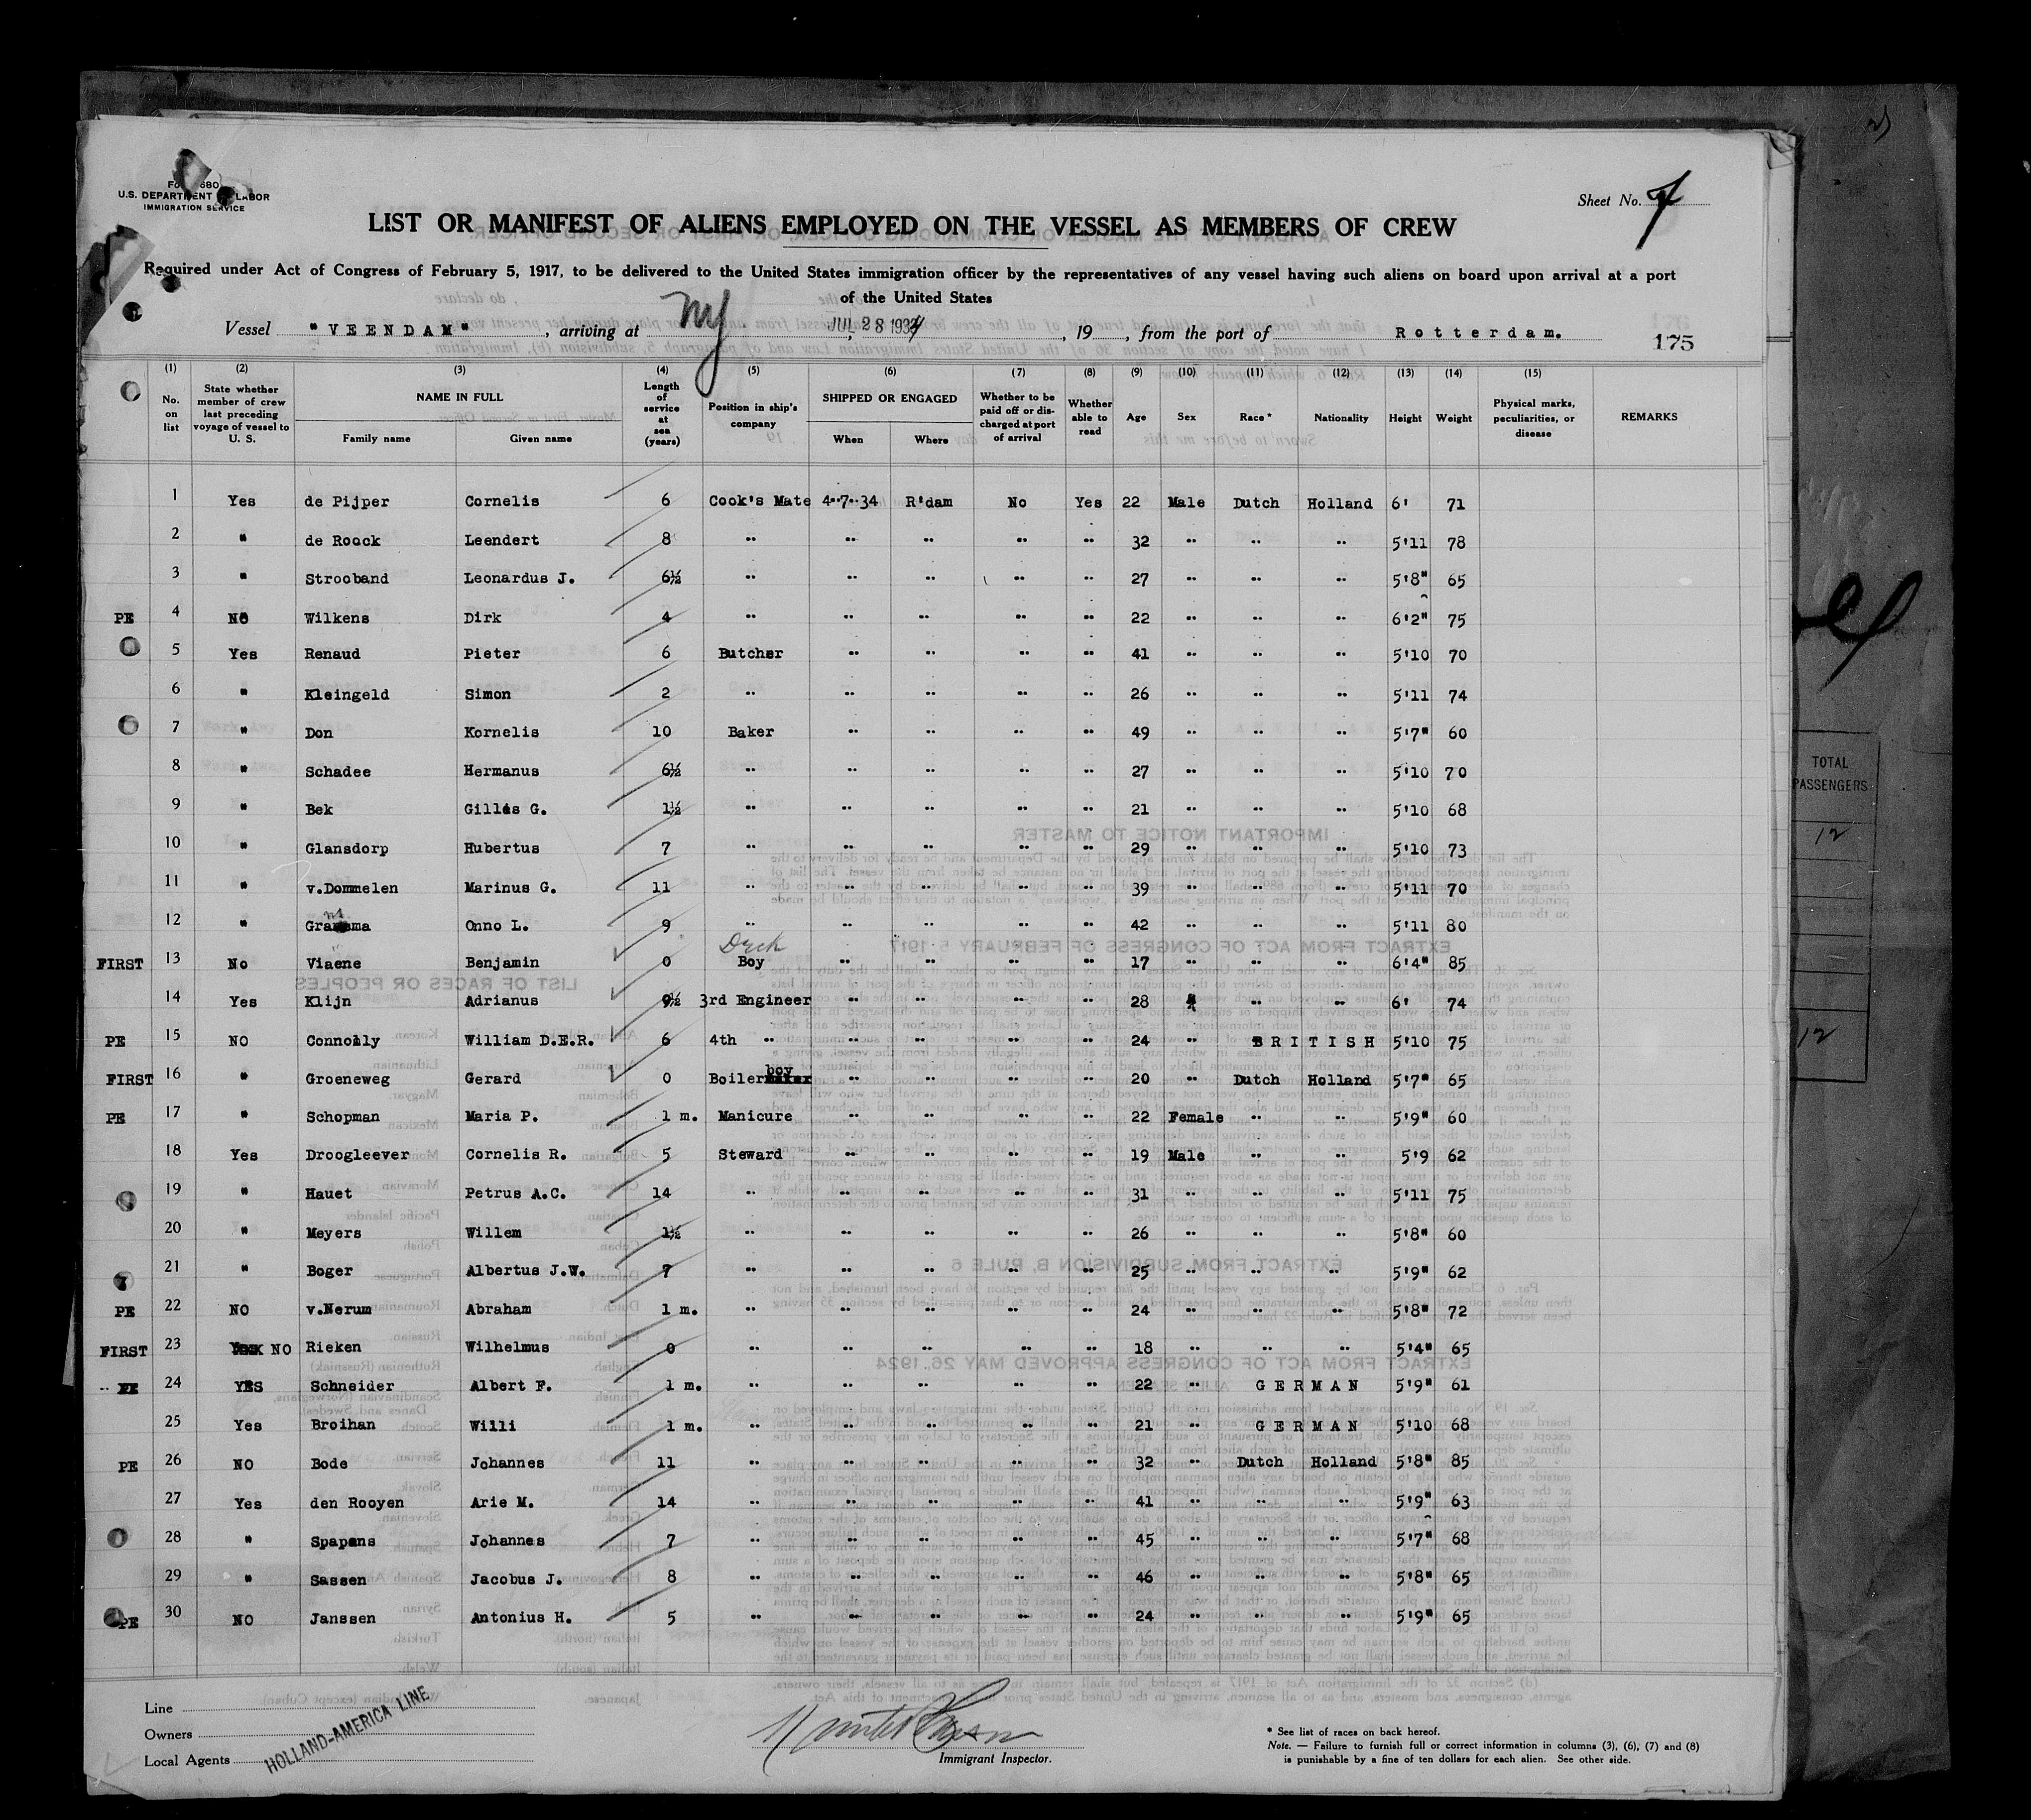 U.S. DEPARTMENT OF LABOR
IMMIGRATION SERVICE
Sheet No. 7
LIST OR MANIFEST OF ALIENS EMPLOYED ON THE VESSEL AS MEMBERS OF CREW
Required under Act of Congress of February 5, 1917, to be delivered to the United States immigration officer by the representatives of any vessel having such aliens on board upon arrival at a port
of the United States
Vessel "VEENDAM", arriving at NY, JUL 28 1934, 19 , from the port of Rotterdam.
175
(1) (2) (3) (4) (5) (6) (7) (8) (9) (10) (11) (12) (13) (14) (15)
No. on list State whether member of crew last preceding voyage of vessel to U. S. NAME IN FULL Family name Given name Length of service at sea (years) Position in ship's company SHIPPED OR ENGAGED When Where Whether to be paid off or discharged at port of arrival Whether able to read Age Sex Race* Nationality Height Weight Physical marks, peculiarities, or disease REMARKS
1 Yes de Pijper Cornelis 6 Cook's Mate 4-7-34 R'dam No Yes 22 Male Dutch Holland 6' 71
2 " de Roock Leendert 8 " " " " " 32 " " " 5'11 78
3 " Strooband Leonardus J. 6½ " " " " " 27 " " " 5'8" 65
PE 4 NO Wilkens Dirk 4 " " " " " 22 " " " 6'2" 75
5 Yes Renaud Pieter 6 Butcher " " " " 41 " " " 5'10 70
6 " Kleingeld Simon 2 " " " " " 26 " " " 5'11 74
7 " Don Kornelis 10 Baker " " " " 49 " " " 5'7" 60
8 " Schadee Hermanus 6½ " " " " " 27 " " " 5'10 70
9 " Bek Gilles G. 1½ " " " " " 21 " " " 5'10 68
10 " Glansdorp Hubertus 7 " " " " " 29 " " " 5'10 73
11 " v.Dommelen Marinus G. 11 " " " " " 39 " " " 5'11 70
12 " Onno L. 9 " " " " " 42 " " " 5'11 80
Deck
FIRST 13 No Viaene Benjamin 0 Boy " " " " 17 " " " 6'4" 85
14 Yes Klijn Adrianus 9½ 3rd Engineer " " " " 28 " " 6' 74
PE 15 NO Connolly William D.E.R. 6 4th " " " " " 24 " BRITISH 5'10 75
FIRST 16 " Groeneweg Gerard 0 Boiler boy " " " " 20 " Dutch Holland 5'7" 65
PE 17 " Schopman Maria P. 1 m. Manicure " " " " 22 Female " " 5'9" 60
18 Yes Droogleever Cornelis R. 5 Steward " " " " 19 Male " " 5'9 62
19 " Hauet Petrus A.C. 14 " " " " " 31 " " " 5'11 75
20 " Meyers Willem 1½ " " " " " 26 " " " 5'8" 60
21 " Boger Albertus J.W. 7 " " " " " 25 " " " 5'9" 62
PE 22 NO v.Nerum Abraham 1 m. " " " " " 24 " " " 5'8" 72
FIRST 23 NO Rieken Wilhelmus 0 " " " " " 18 " " " 5'4" 65
PE 24 YES Schneider Albert F. 1 m. " " " " " 22 " GERMAN 5'9" 61
25 Yes Broihan Willi 1 m. " " " " " 21 " GERMAN 5'10 68
PE 26 NO Bode Johannes 11 " " " " " 32 " Dutch Holland 5'8" 85
27 Yes den Rooyen Arie M. 14 " " " " " 41 " " " 5'9" 63
28 " Spapens Johannes 7 " " " " " 45 " " " 5'7" 68
29 " Sassen Jacobus J. 8 " " " " " 46 " " " 5'8" 65
PE 30 NO Janssen Antonius H. 5 " " " " " 24 " " " 5'9" 65
Line
Owners
Local Agents
HOLLAND-AMERICA LINE
Immigrant Inspector.
* See list of races on back hereof.
Note. — Failure to furnish full or correct information in columns (3), (6), (7) and (8)
is punishable by a fine of ten dollars for each alien. See other side.
TOTAL
PASSENGERS
12
12